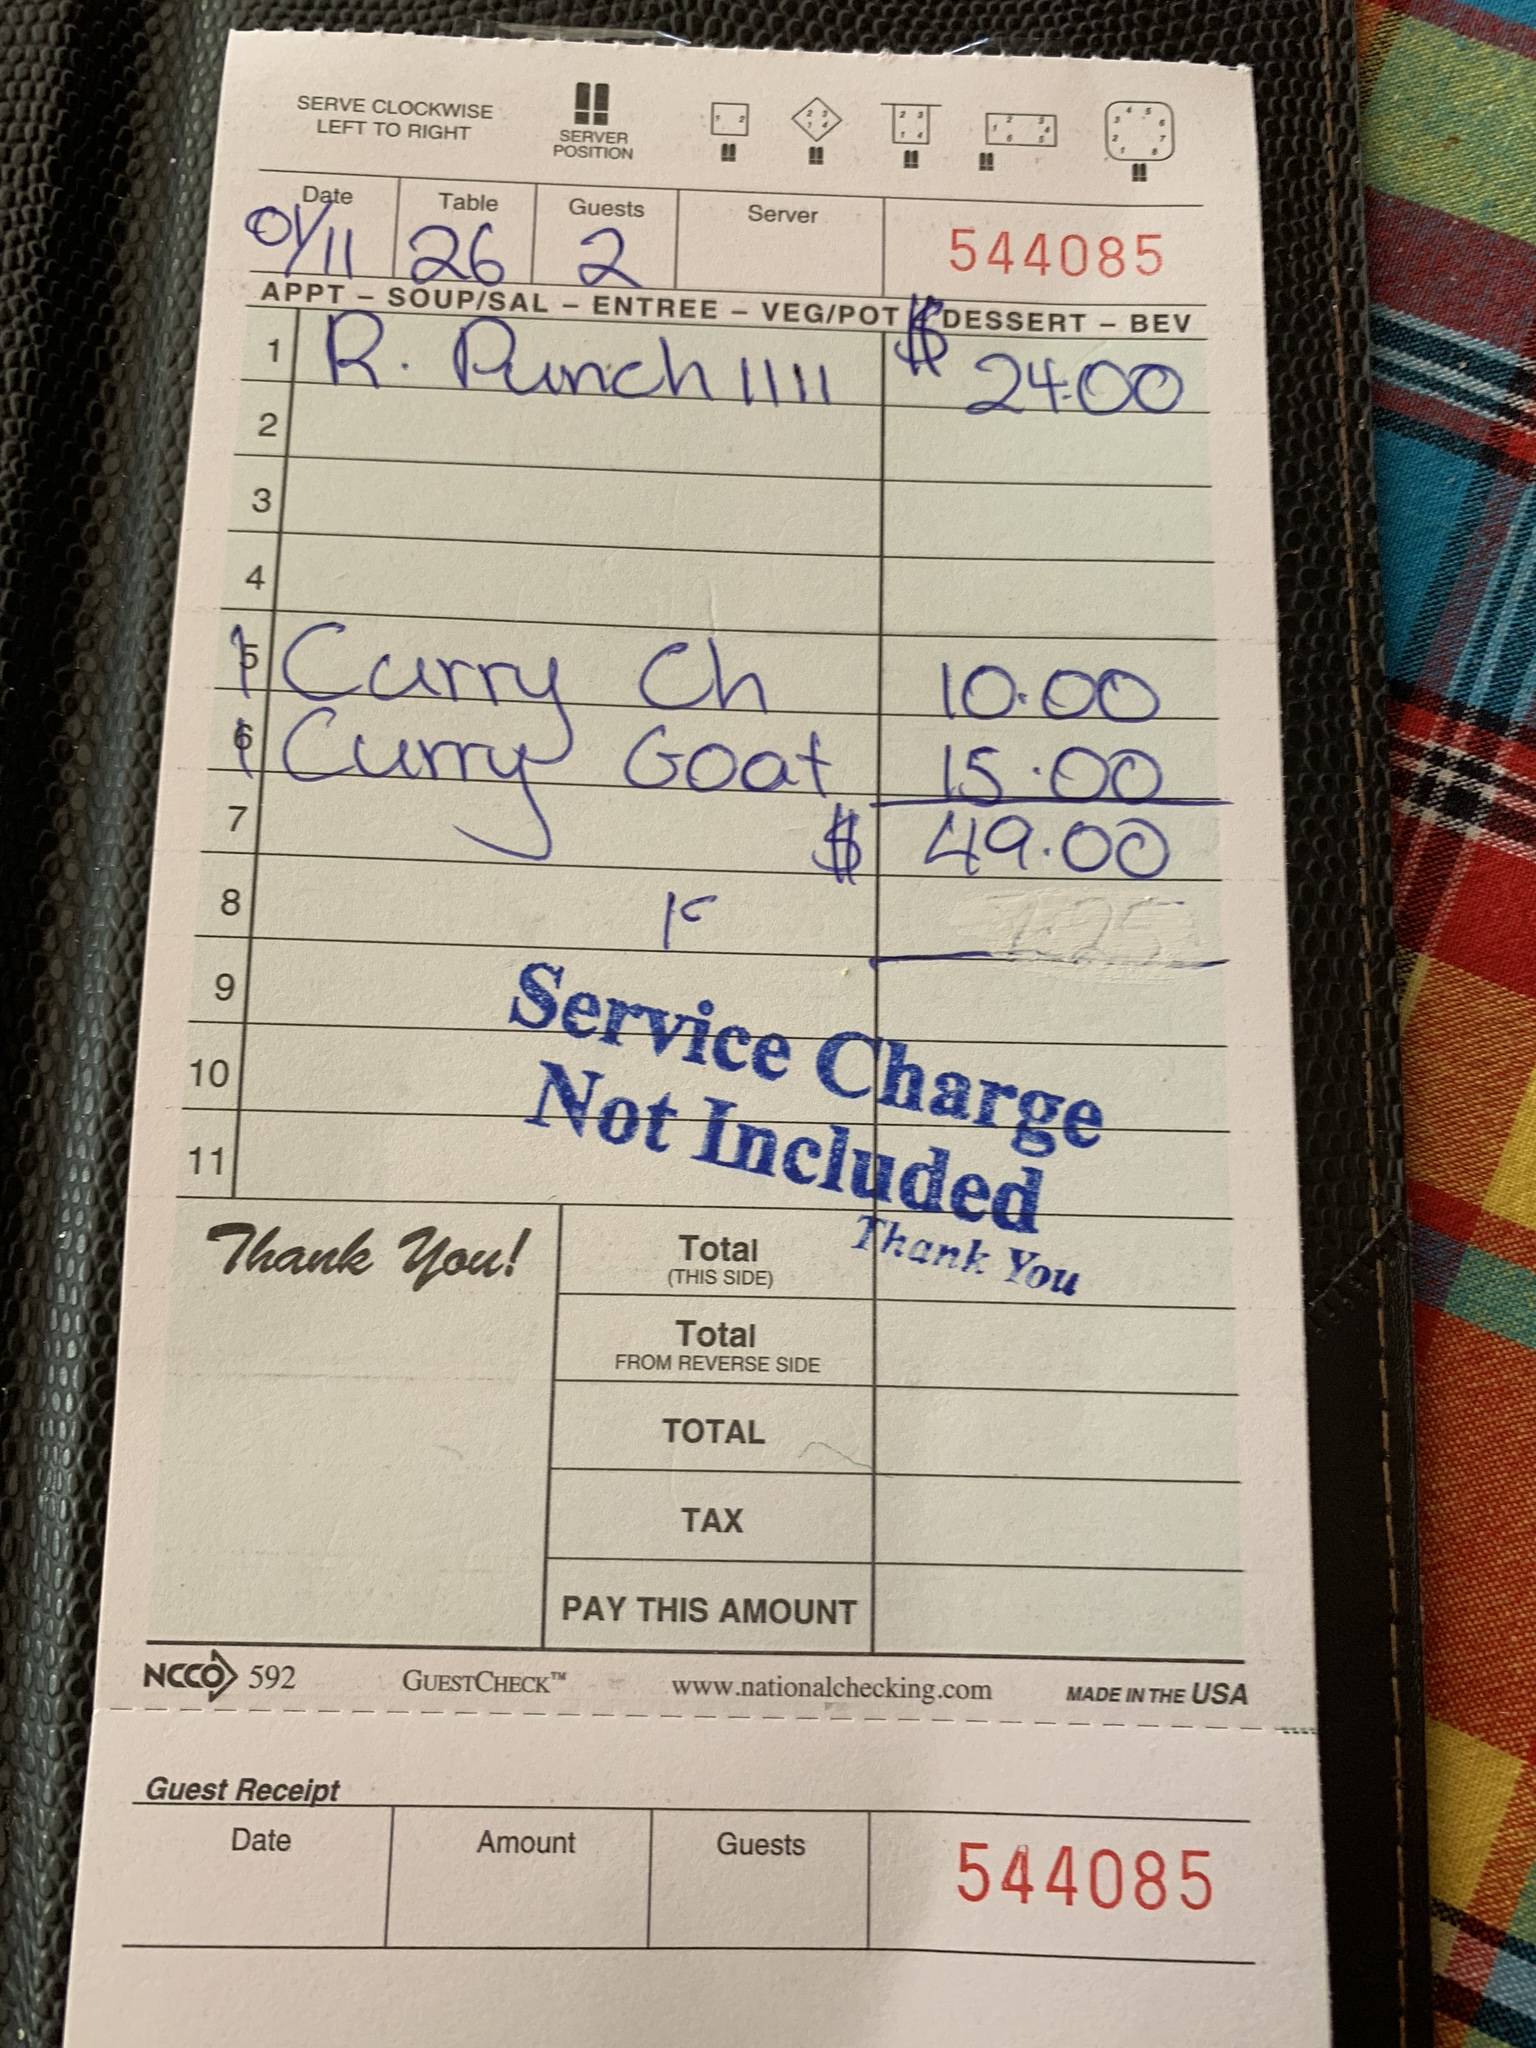 SERVE CLOCKWISE
LEFT TO RIGHT
SERVER
POSITION
1 2
2 3
1 4
2 3
1 4
2 3
1 4
6 5
4 5
3 6
2 7
1 8
Date Table Guests Server
01/11 26 2 544085
APPT – SOUP/SAL – ENTREE – VEG/POT – DESSERT – BEV
1 R. Punch IIII $ 24.00
2
3
4
5 1 Curry Ch 10.00
6 1 Curry Goat 15.00
7 $ 49.00
8
9
10
11
Service Charge
Not Included
Thank You
Thank You!
Total
(THIS SIDE)
Total
FROM REVERSE SIDE
TOTAL
TAX
PAY THIS AMOUNT
NCCO 592 GUESTCHECK™ www.nationalchecking.com MADE IN THE USA
Guest Receipt
Date Amount Guests 544085